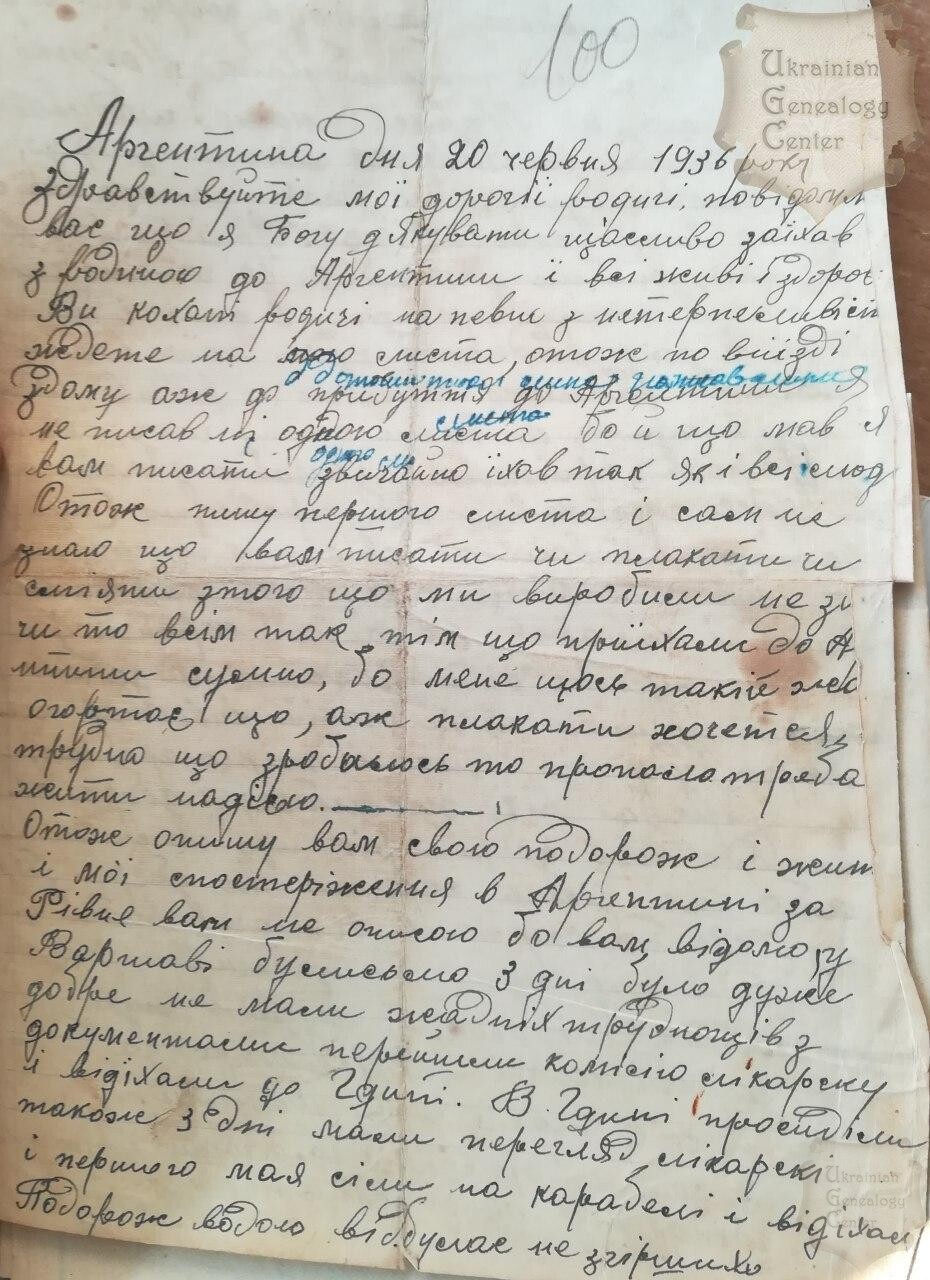 100
Ukrainian
Genealogy
Center
Аргентина дня 20 червня 1936 року
Здравствуйте мої дорогії родичі, повідомл
вас що я Богу дякувати щасливо заїхав
з родиною до Аргентини і всі живі і здоров
Ви кохані родичі на певни з нетерпеливіст
ждете на мого листа, отож по виїзді
здому аж до прибуття до Аргентини я
не писав ні одного листа бо й що мав я
вам писати звичайно їхав так як і всі люд
Отож пишу першого листа і сам не
знаю що вам писати чи плакати чи
сміяти зтого що ми виробили не зн
чи то всім так тім що приїхали до А
нтини сумно, бо мене щось такій жа
огортає що, аж плакати хочется,
трудно що зробилось то пропало треба
жити надією.
Отож опишу вам свою подорож і жит
і мої спостеріження в Аргентині за
Рівне вам не описою бо вам відомо, у
Варшаві булисьмо 3 дні було дуже
добре не мали жадніх трудпощів з
документами перейшли комісію лікарску
і відїхали до Гдині. В Гдині просиділи
також 3 дні мали перегляд лікарскі
і першого мая сіли на карабелі і відїхали
Подорож водою відбулас не згіршихо
Ukrainian
Genealogy
Center